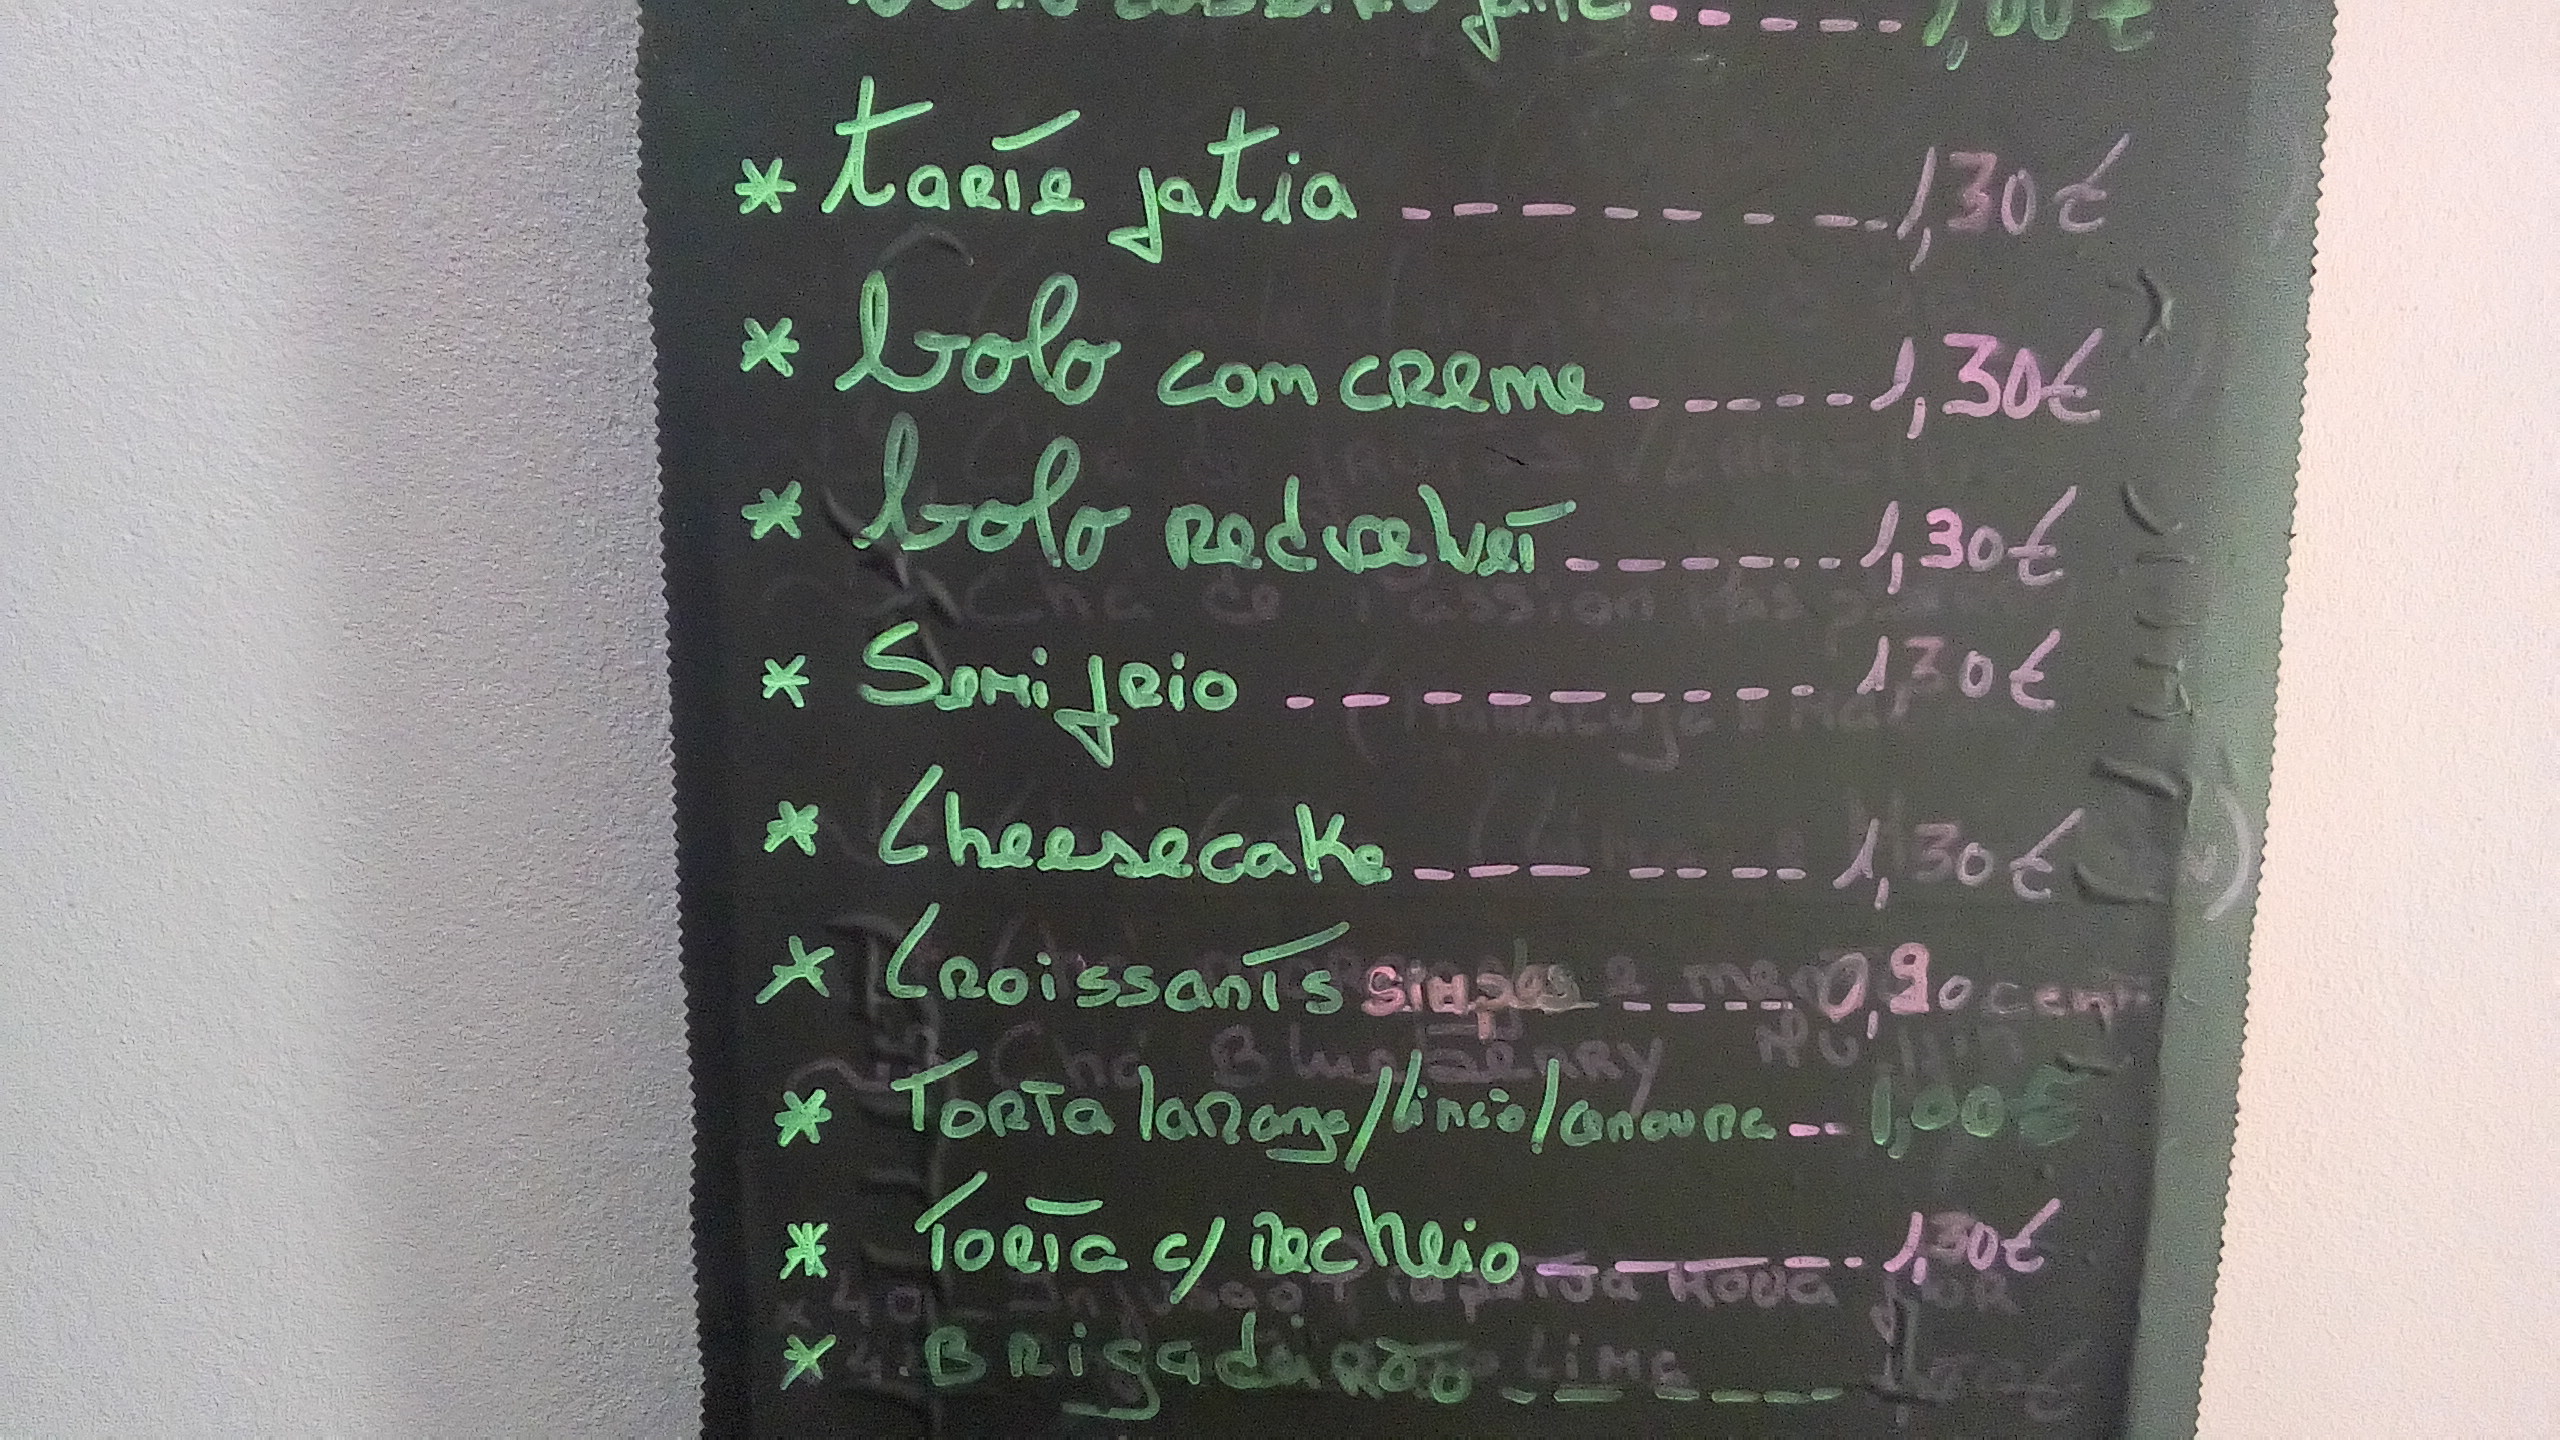 * tarte fatia -------- 1,30€
* bolo com creme ----- 1,30€
* bolo redvelvet ------ 1,30€
* Semi frio --------- 1,30€
* Cheesecake ------- 1,30€
* Croissants simples ---- 0,90 cent
* Torta laranja/limão/cenoura -- 1,00€
* Torta c/ recheio ------ 1,30€
* Brigadeirão -------